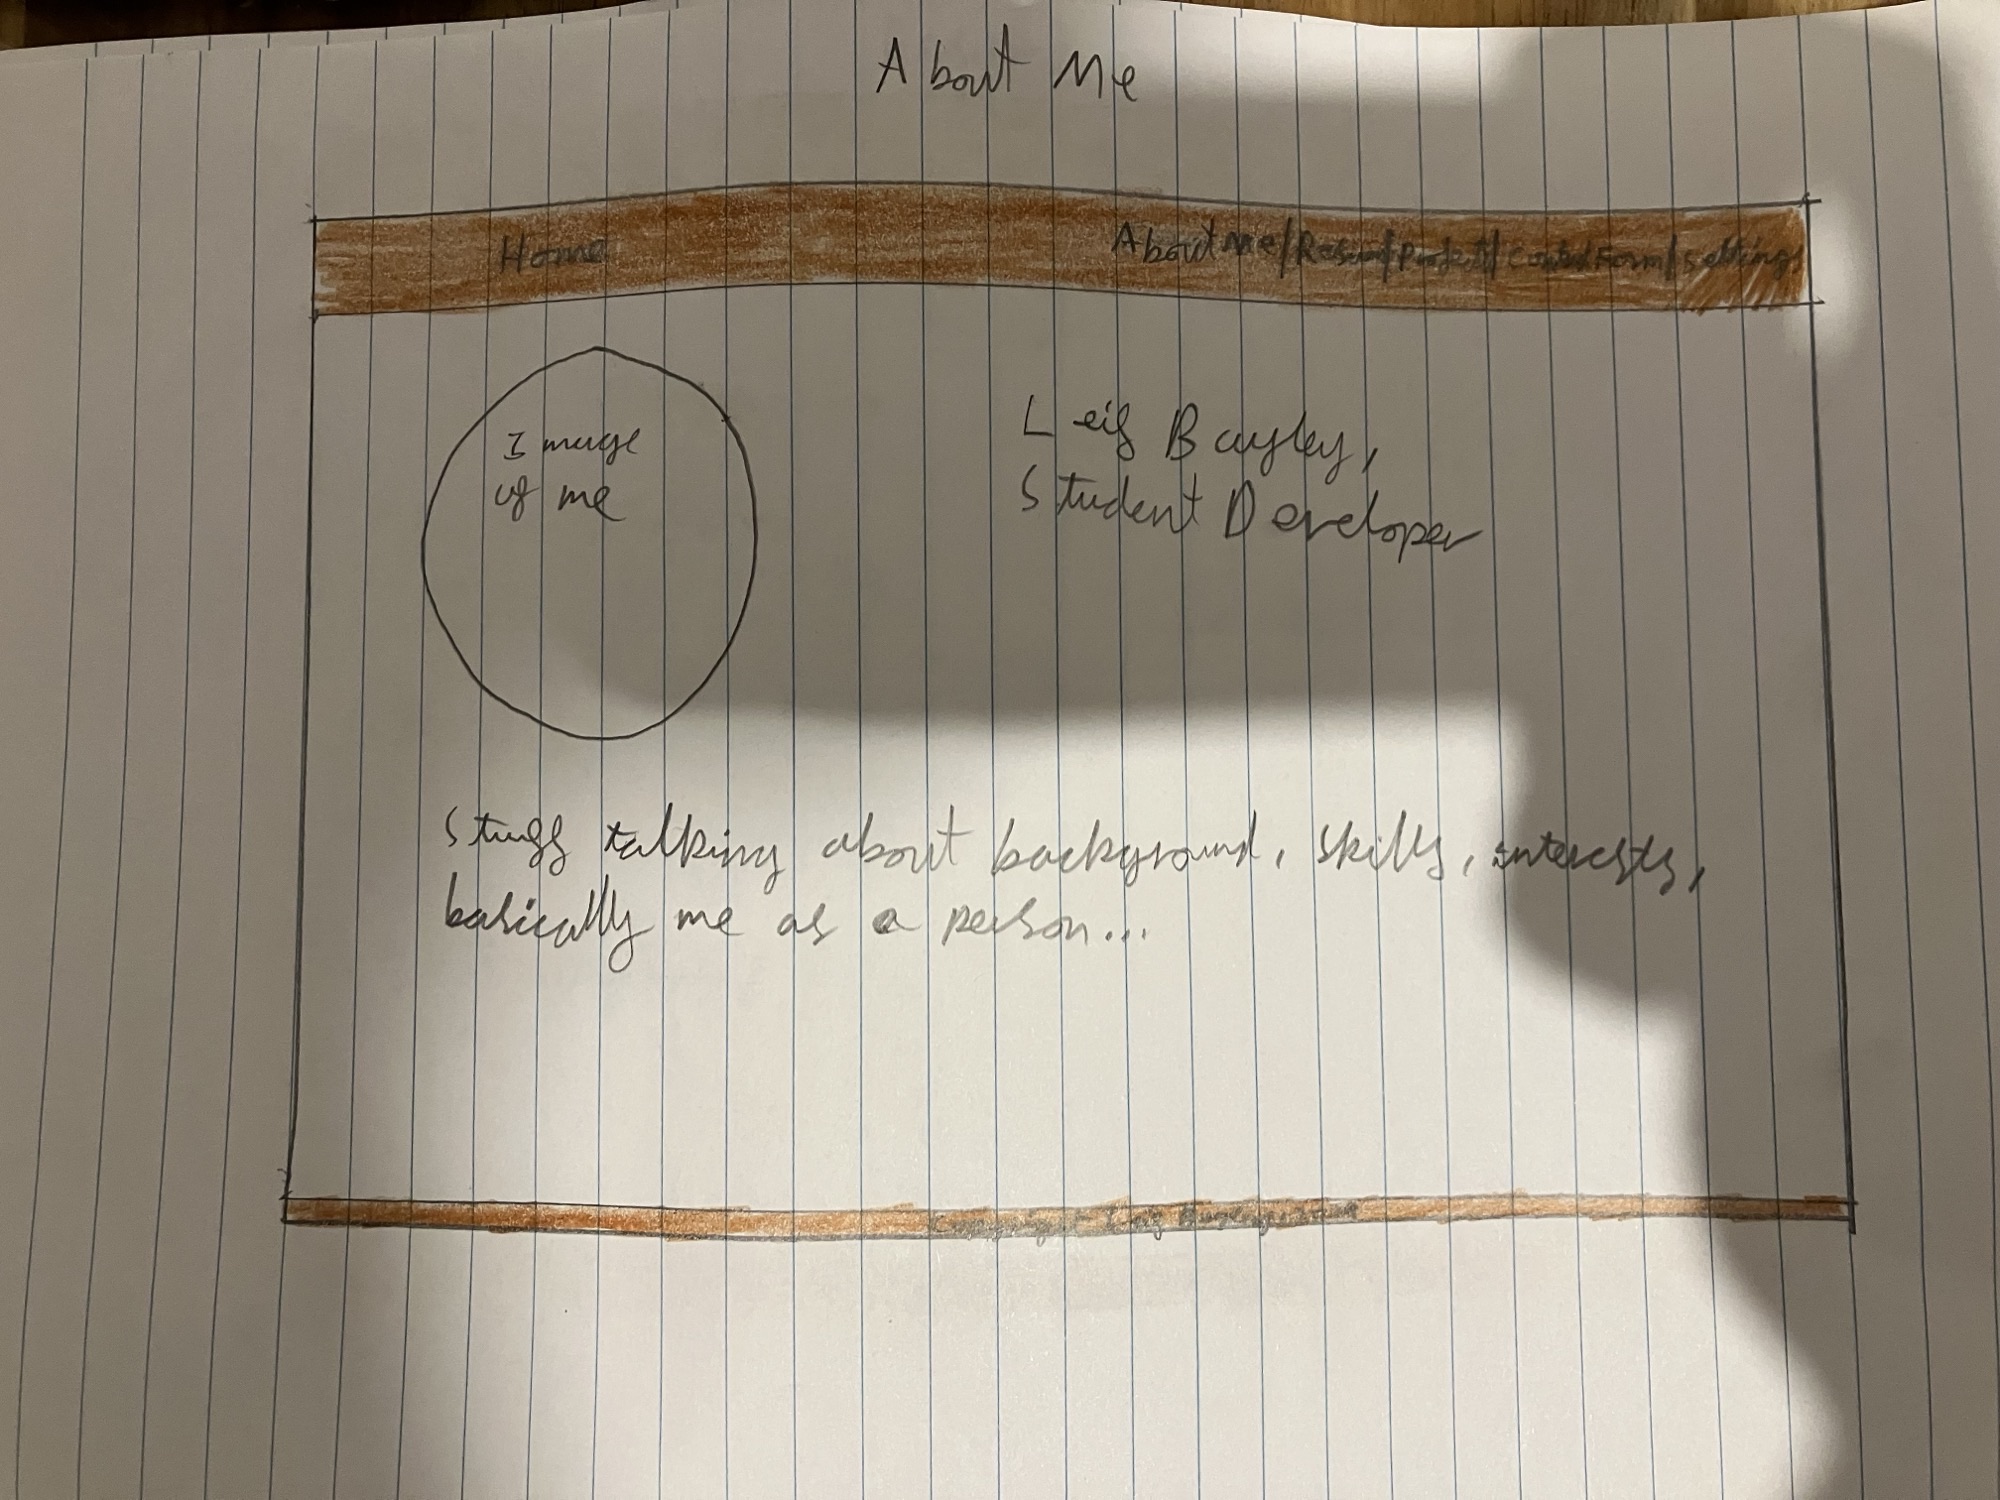 About Me
Home About me/Resume/Project/Contact Form/setting
Image
of me
Leig Bayley,
Student Developer
Stuff talking about background, skills, interests,
basically me as a person...